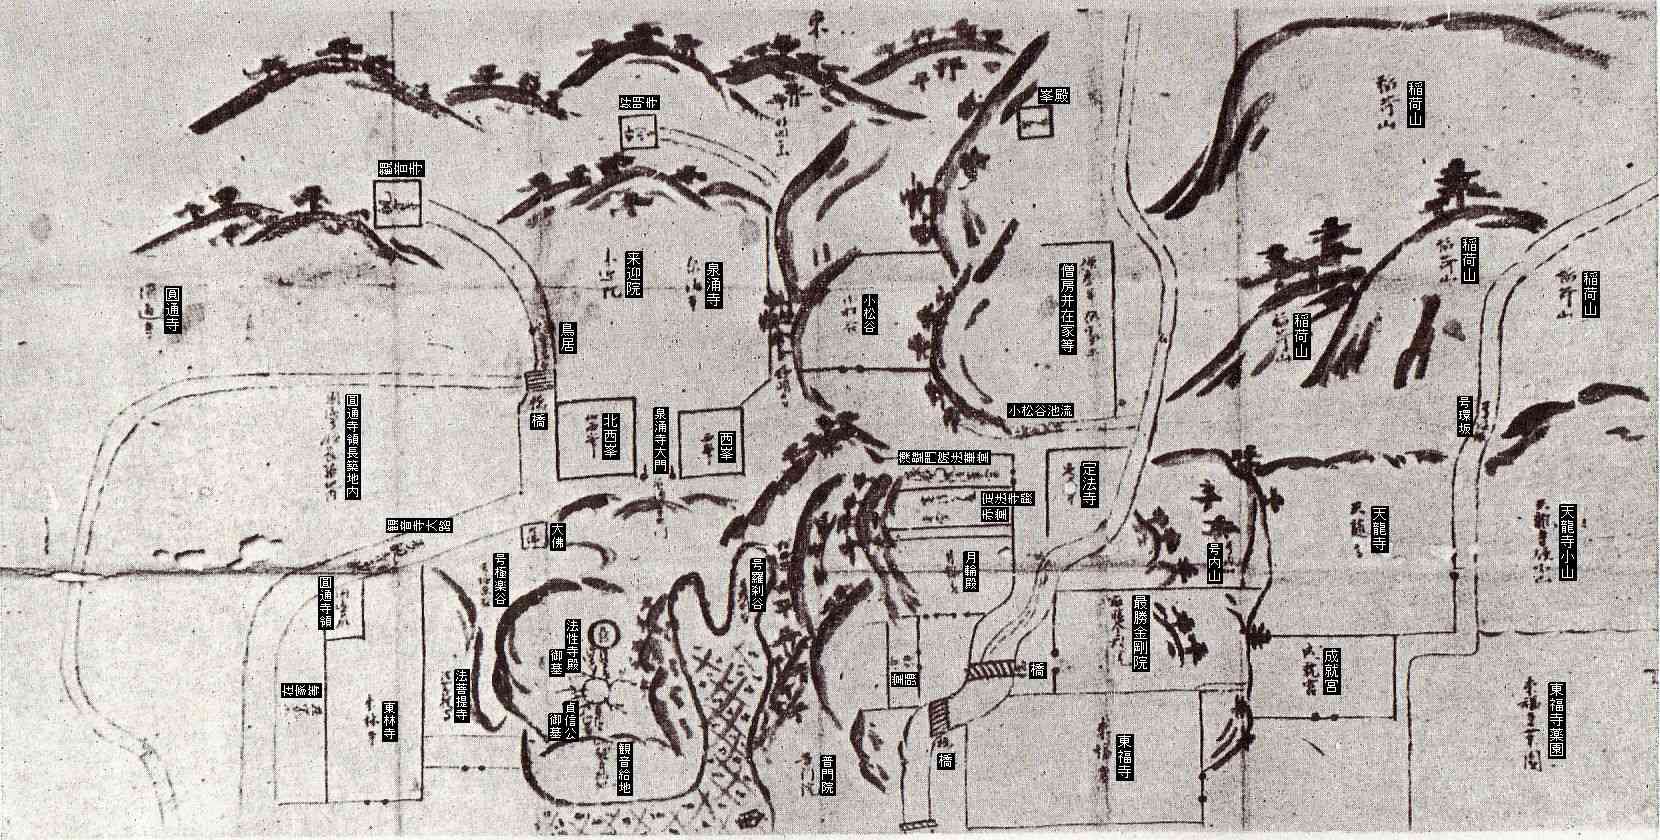 東
稲荷山
峯殿
観音寺
圓通寺
来迎院
泉涌寺
小松谷
僧房并在家等
稲荷山
稲荷山
稲荷山
鳥居
橋
北西峯
泉涌寺大門
西峯
小松谷池流
号環坂
圓通寺領長築地内
観音寺大路
大佛
最勝金剛院
定法寺
天龍寺
天龍寺小山
号極楽谷
号羅刹谷
月輪殿
号内山
圓通寺領
法性寺殿
御墓
貞信公
御墓
橋
成就宮
在家等
東林寺
法菩提寺
観音給地
普門院
橋
東福寺
東福寺薬園